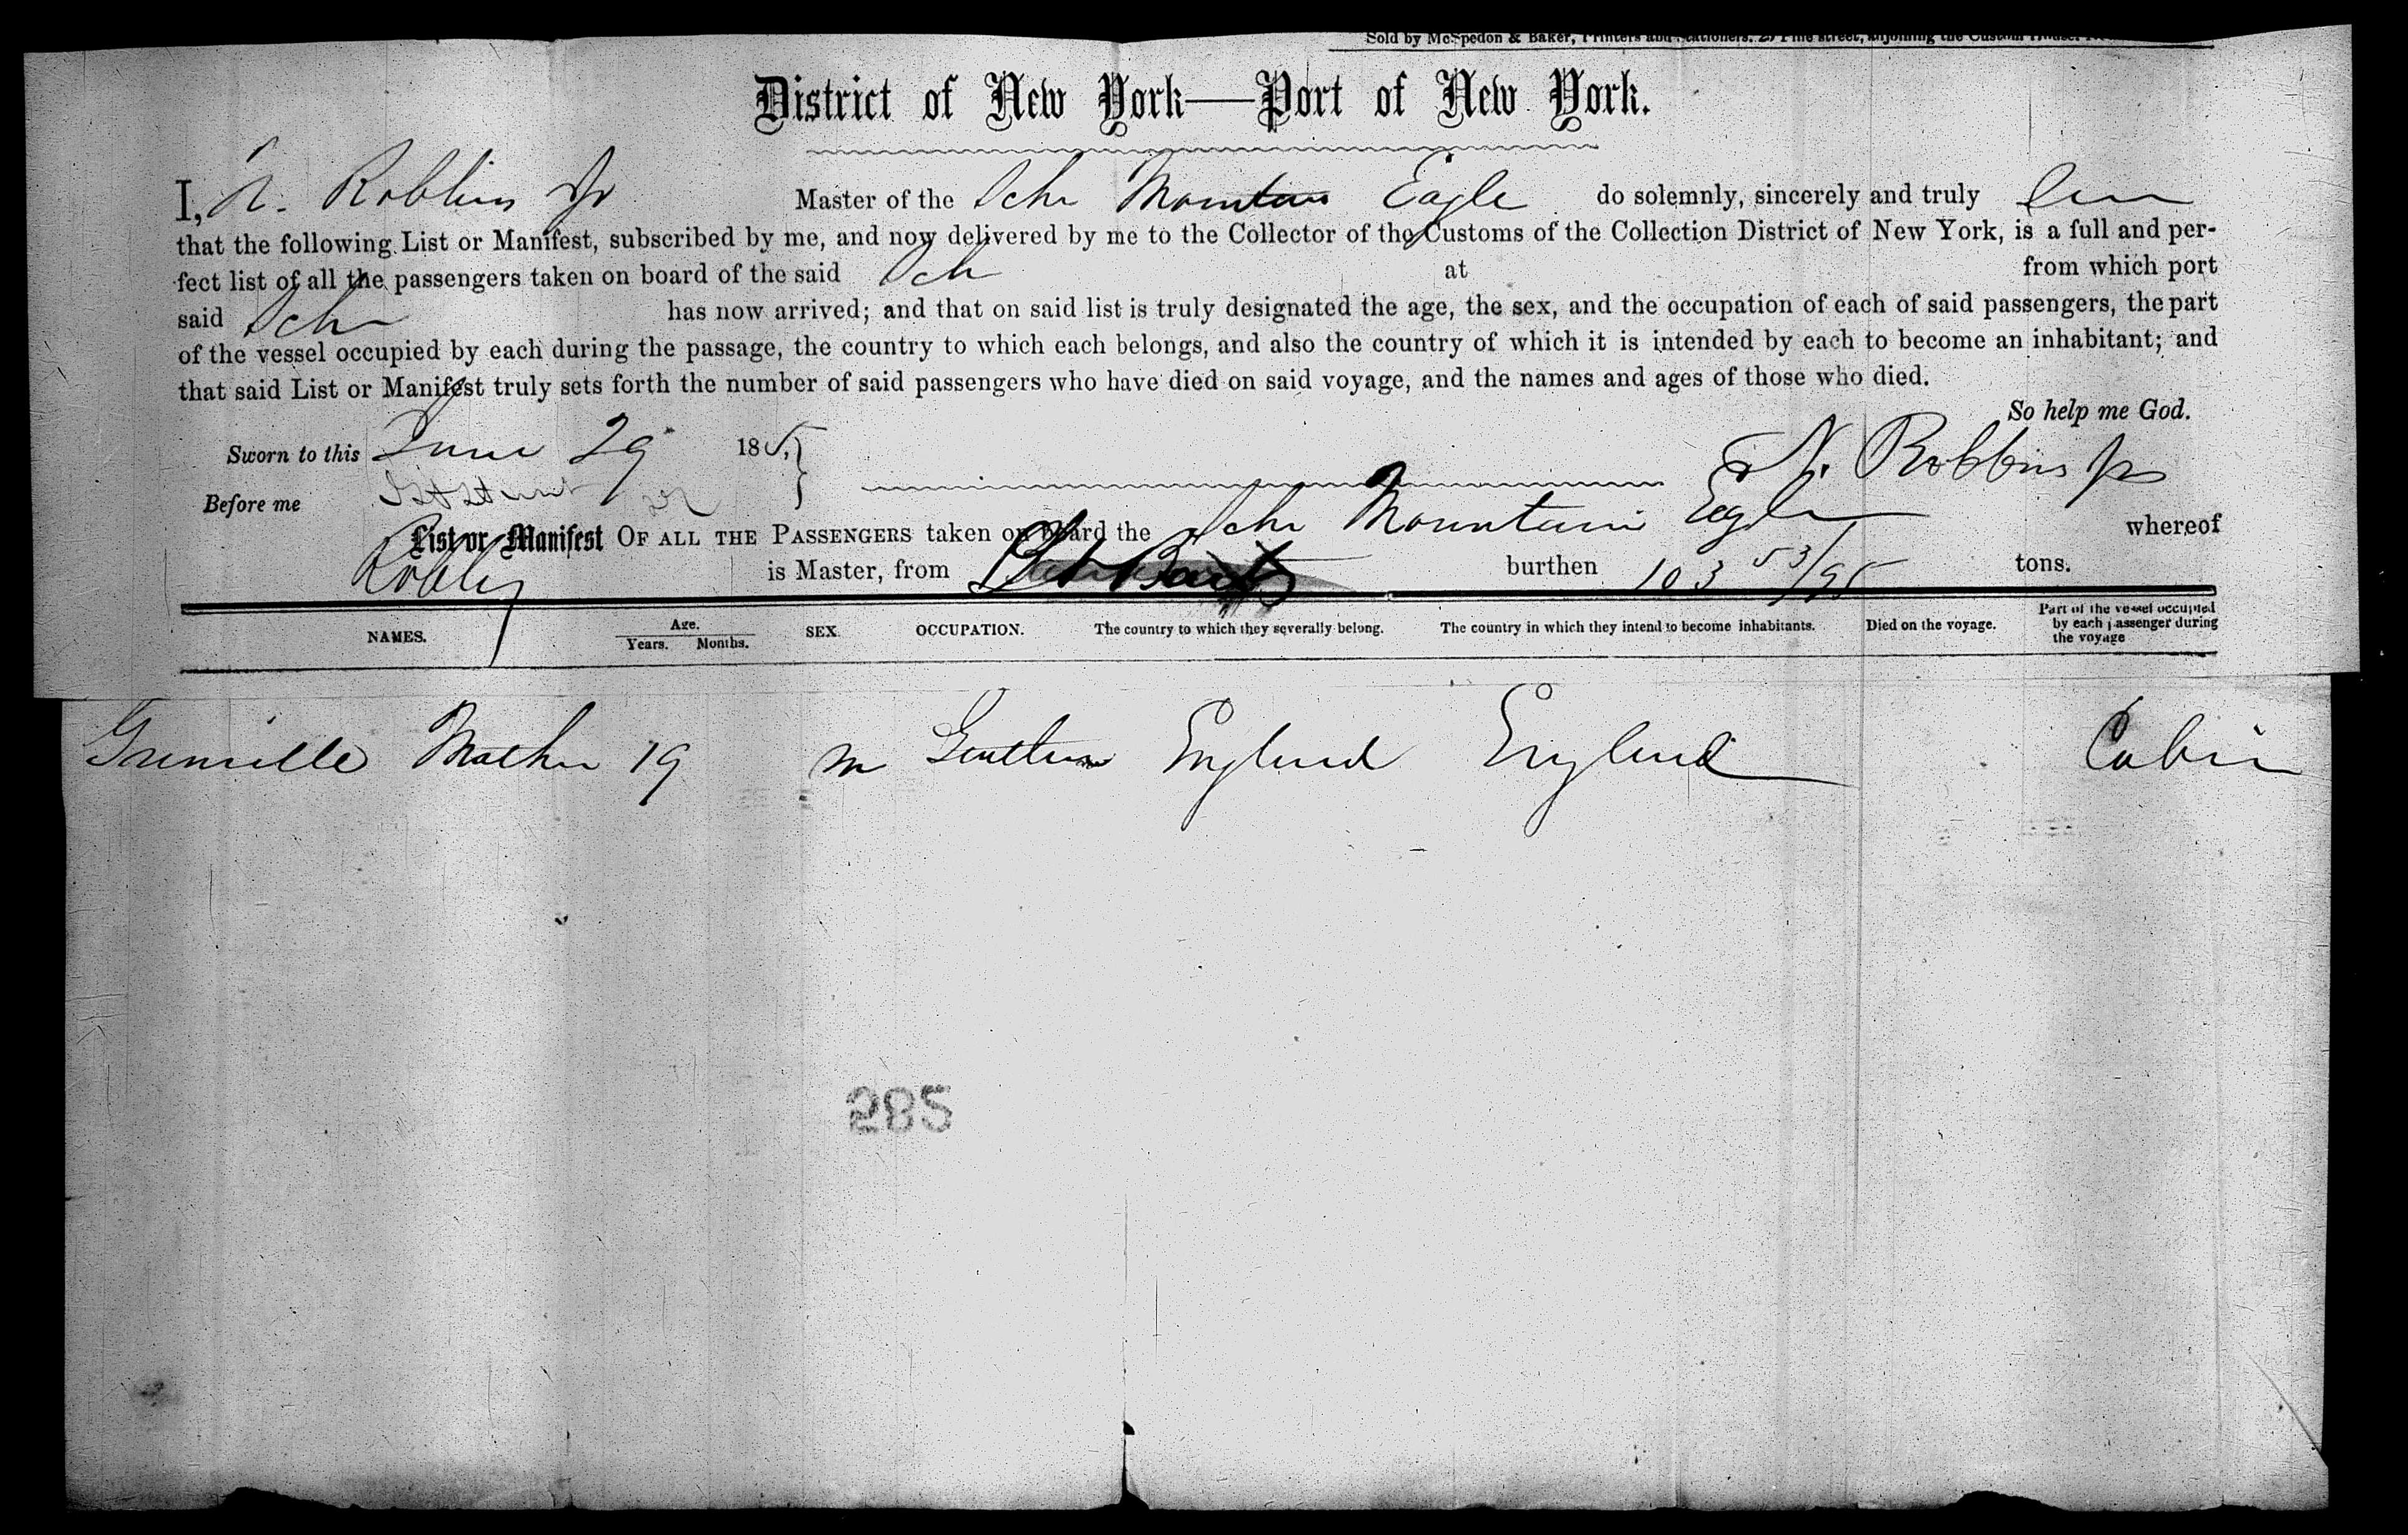 Sold by McSpedon & Baker, Printers and Stationers. 25 Pine street, adjoining the Custom House.
District of New York—Port of New York.
I, N. Robbins Jr Master of the Schr Mountain Eagle do solemnly, sincerely and truly
that the following List or Manifest, subscribed by me, and now delivered by me to the Collector of the Customs of the Collection District of New York, is a full and per-
fect list of all the passengers taken on board of the said Sch at from which port
said Schr has now arrived; and that on said list is truly designated the age, the sex, and the occupation of each of said passengers, the part
of the vessel occupied by each during the passage, the country to which each belongs, and also the country of which it is intended by each to become an inhabitant; and
that said List or Manifest truly sets forth the number of said passengers who have died on said voyage, and the names and ages of those who died.
So help me God.
Sworn to this June 29 185
N. Robbins Jr
Before me
List or Manifest OF ALL THE PASSENGERS taken on board the Schr Mountain Eagle whereof
Robbins is Master, from burthen 103 53/95 tons.
NAMES. Age. Years. Months. SEX. OCCUPATION. The country to which they severally belong. The country in which they intend to become inhabitants. Died on the voyage. Part of the vessel occupied by each passenger during the voyage
Grenville Mather 19 m Gentleman England England Cabin
285